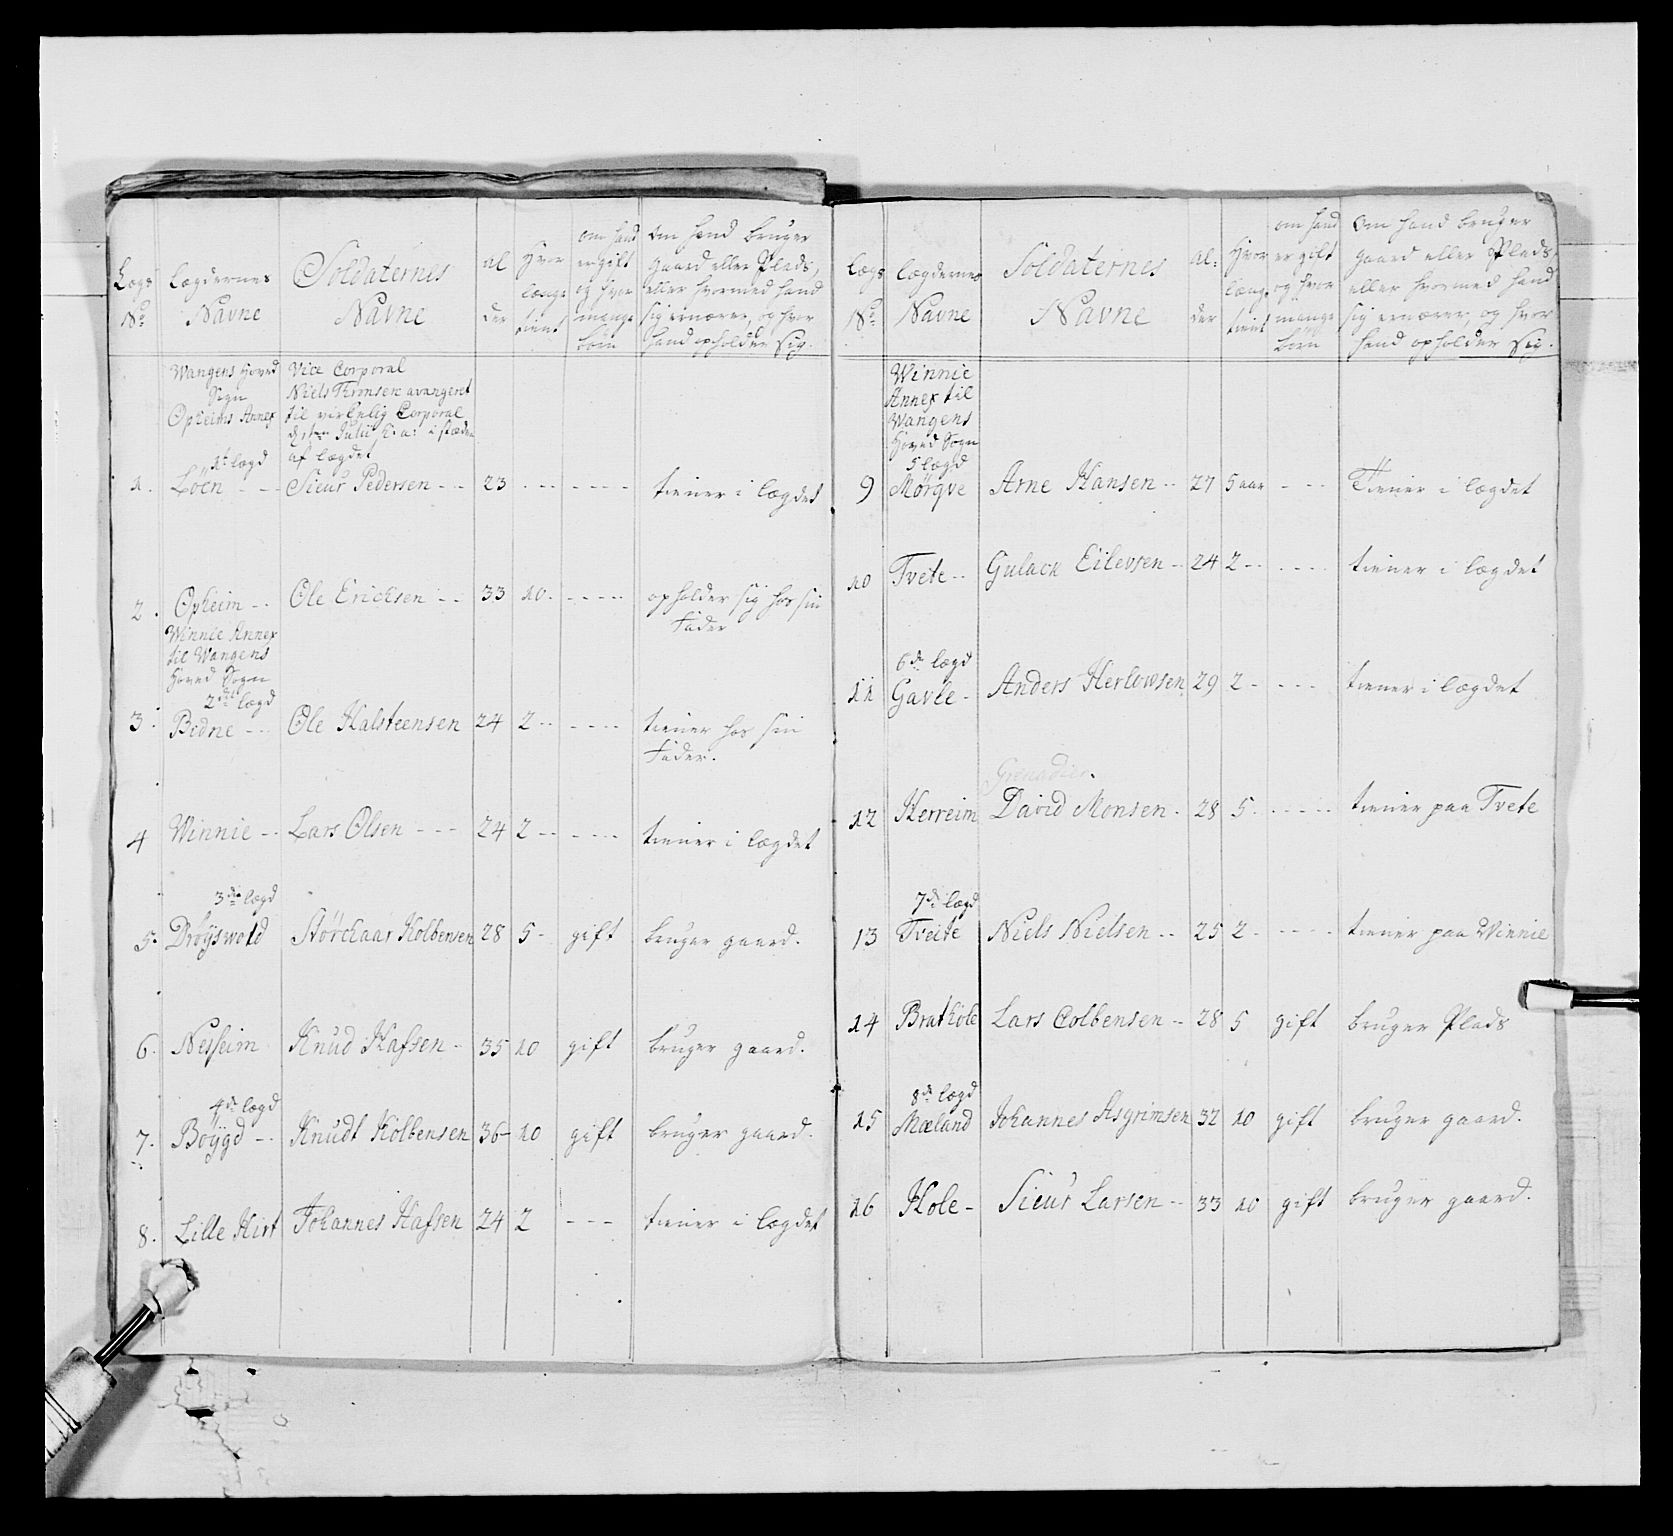 Legs No Lægdernes Navne Soldaternes Navne al der Hvor længe tient om hand er gift og hvor mange börn Om hand bruger Gaard eller Plads, eller hvormed hand sig ernærer, og hvor hand opholder sig.
Wangens Hoved Sogn
Opheims Annex
Vice Corporal
Niels Thronsen avangeret
til virkelig Corporal
Julii h: a: i stæden
af lægdet
1t lægd
1. Löen - - Sieur Pedersen - - 23 - - - - - - - tiener i lægdet
2. Opheim - - Ole Ericksen - - 33 10. - - - - - opholder sig hos sin
Fader
Winnie Annex
til Wangens
Hoved Sogn
2det lægd
3. Bidne - - Ole Halsteensen 24 2 - - - - - - tiener hos sin
Fader.
4 Winnie - - Lars Olsen - - - 24 2 - - - - - - tiener i lægdet
3de lægd
5. Dröÿswold Störckaar Kolbensen 28 5 - gift bruger gaard.
6. Nesheim Knud Hafsen - 35 10 gift bruger gaard.
4de lægd
7. Boÿgd - - Knudt Kolbensen 36 - 10 gift bruger gaard.
8. Lille Hirt Johannes Hafsen 24 2 - - - tiener i lægdet
Legs No Lægdernes Navne Soldaternes Navne Al: der Hvor længe tient om hand er gift og hvor mange börn Om hand bruger gaard eller Plads, eller hvormed hand sig ernærer, og hvor hand opholder sig.
Winnie
Annex til
Wangens
Hoved Sogn
5 lægd
9 Mörqve Arne Hansen - - 27 5 aar - - - Tiener i lægdet
10 Tvete - - Gulack Eilevsen - - 24 2 - - - - - - tiener i lægdet
6de lægd
11 Gavle - Anders Herlowsen 29 2 - - - - tiener i lægdet
Grenadier.
12 Herreim David Monsen - 28 5 - - - - - tiener paa Tvete
7de lægd
13 Tveite Niels Nielsen - - 25 2 - - - - - tiener paa Winnie
14 Brathole Lars Colbensen - - 28 5 gift bruger Plads
8de lægd
15 Mæland Johannes Asgrimsen 32 10 gift bruger gaard.
16 Hole - Sieur Larsen - - 33 10 gift bruger gaard.